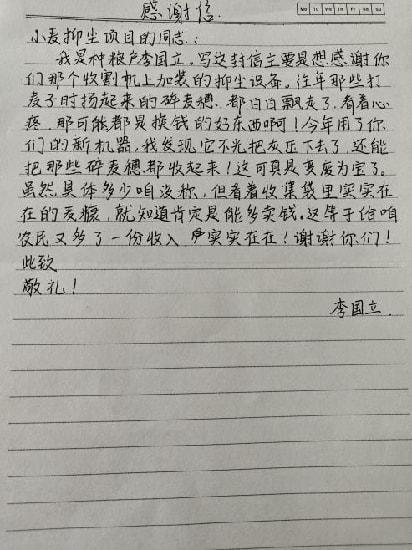 感谢信
小麦抑尘项目的同志：
我是种粮户李国立，写这封信主要是想感谢你
们那个收割机上加装的抑尘设备。往年那些打
麦子时扬起来的碎麦穗，都白白飘走了，看着心
疼，那可能都是换钱的好东西啊！今年用了你
们的新机器，我发现它不光把灰压下去了，还能
把那些碎麦穗都收起来！这可真是变废为宝了。
虽然具体多少咱没称，但看着收集袋里实实在
在的麦糠，就知道肯定是能多卖钱。这等于给咱
农民又多了一份收入，实实在在！谢谢你们！
此致
敬礼！
李国立